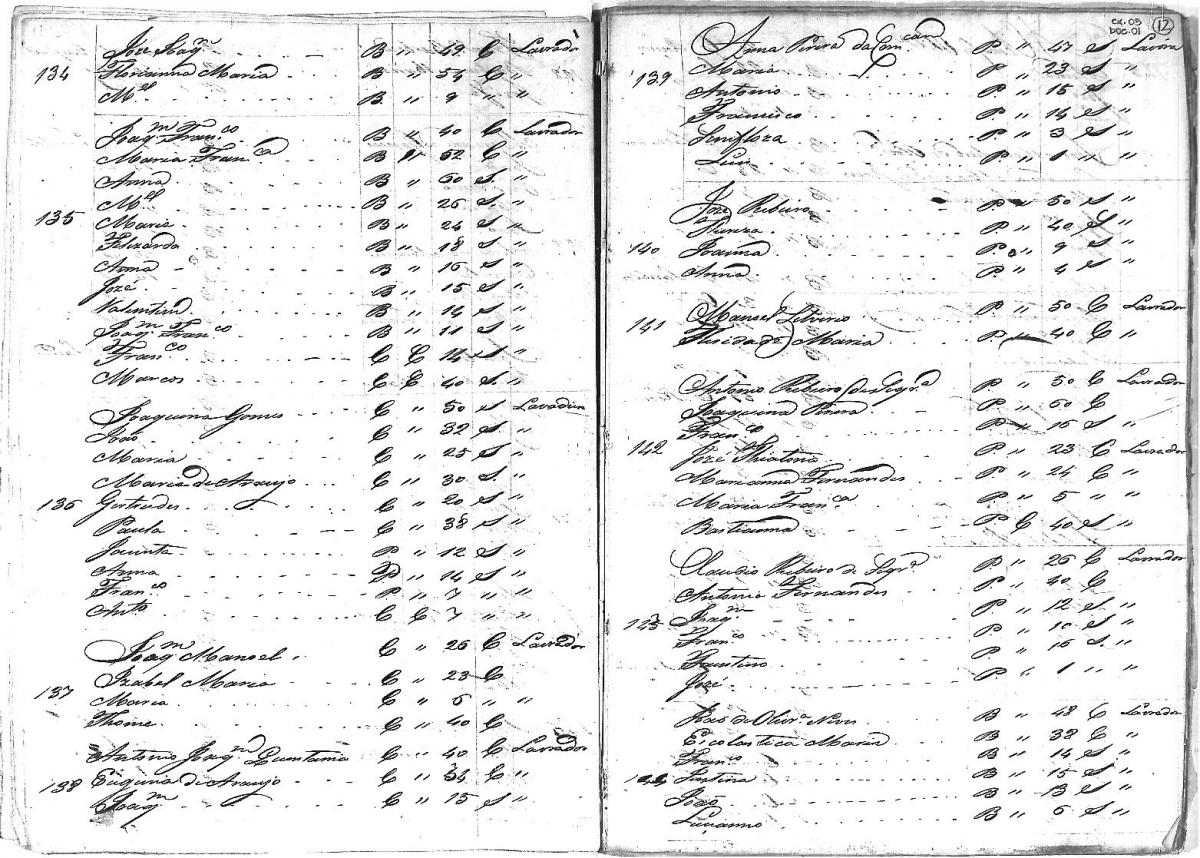 Joze Joaqm B " 49 C Lavrador
134 Florianna Maria B " 54 C "
Mel B " 9 " "
Joaqm Franco B " 40 C Lavrador
Maria Franca B " 52 C "
Anna B " 60 S "
Mel B " 26 S "
135 Maria B " 24 S "
Felizarda B " 18 S "
Anna B " 16 S "
Jozé B " 15 S "
Valentim B " 14 S "
Joaqm Franco B " 11 S "
Franco C C 14 S "
Marcos C C 40 S "
Joaquina Gomes C " 50 S
João C " 32 S "
Maria C " 25 S "
Maria de Araujo C " 30 S "
136 Gertrudes C " 20 S "
Paula C " 38 S "
Jacinta P " 12 S "
Anna P " 14 S "
Franco P " 7 " "
Anto C C 7 " "
Joaqm Manoel C " 26 C Lavrador
137 Izabel Maria C " 23 C
Maria C " 6 " "
Thome C " 40 C
Antonio Joaqm C " 40 C Lavrador
138 de Araujo C " 34 C "
Joaqm C " 15 S "
CX. 03
DOC. 01
12
Anna P " 47 S Lavora
139 Maria P " 23 S "
Antonio P " 15 S "
Francisco P " 14 S "
P " 3 S "
Luis P " 1 " "
Joze Ribeiro P " 50 S "
P " 40 S "
140 Joanna P " 9 S "
Anna P " 4 S "
141 Manoel P " 50 C Lavrador
Maria P " 40 C "
Antonio Ribeiro P " 50 C Lavrador
Joaquina P " 60 C
Franco P " 15 S "
142 Joze P " 23 C Lavrador
Marianna Fernandes P " 24 C "
Maria Franca P " 5 " "
Bastianna P C 40 S "
Claudio Ribeiro de P " 26 C Lavrador
Antonia Fernandes P " 40 C
Joaqm P " 12 S "
Franco P " 10 S "
Faustino P " 16 S "
Jozé P " 1 " "
João de Olivra Neves B " 48 C Lavrador
Escolastica Maria B " 38 C "
Franco B " 14 S "
B " 15 S "
João B " 13 S "
Lucianno B " 6 S "